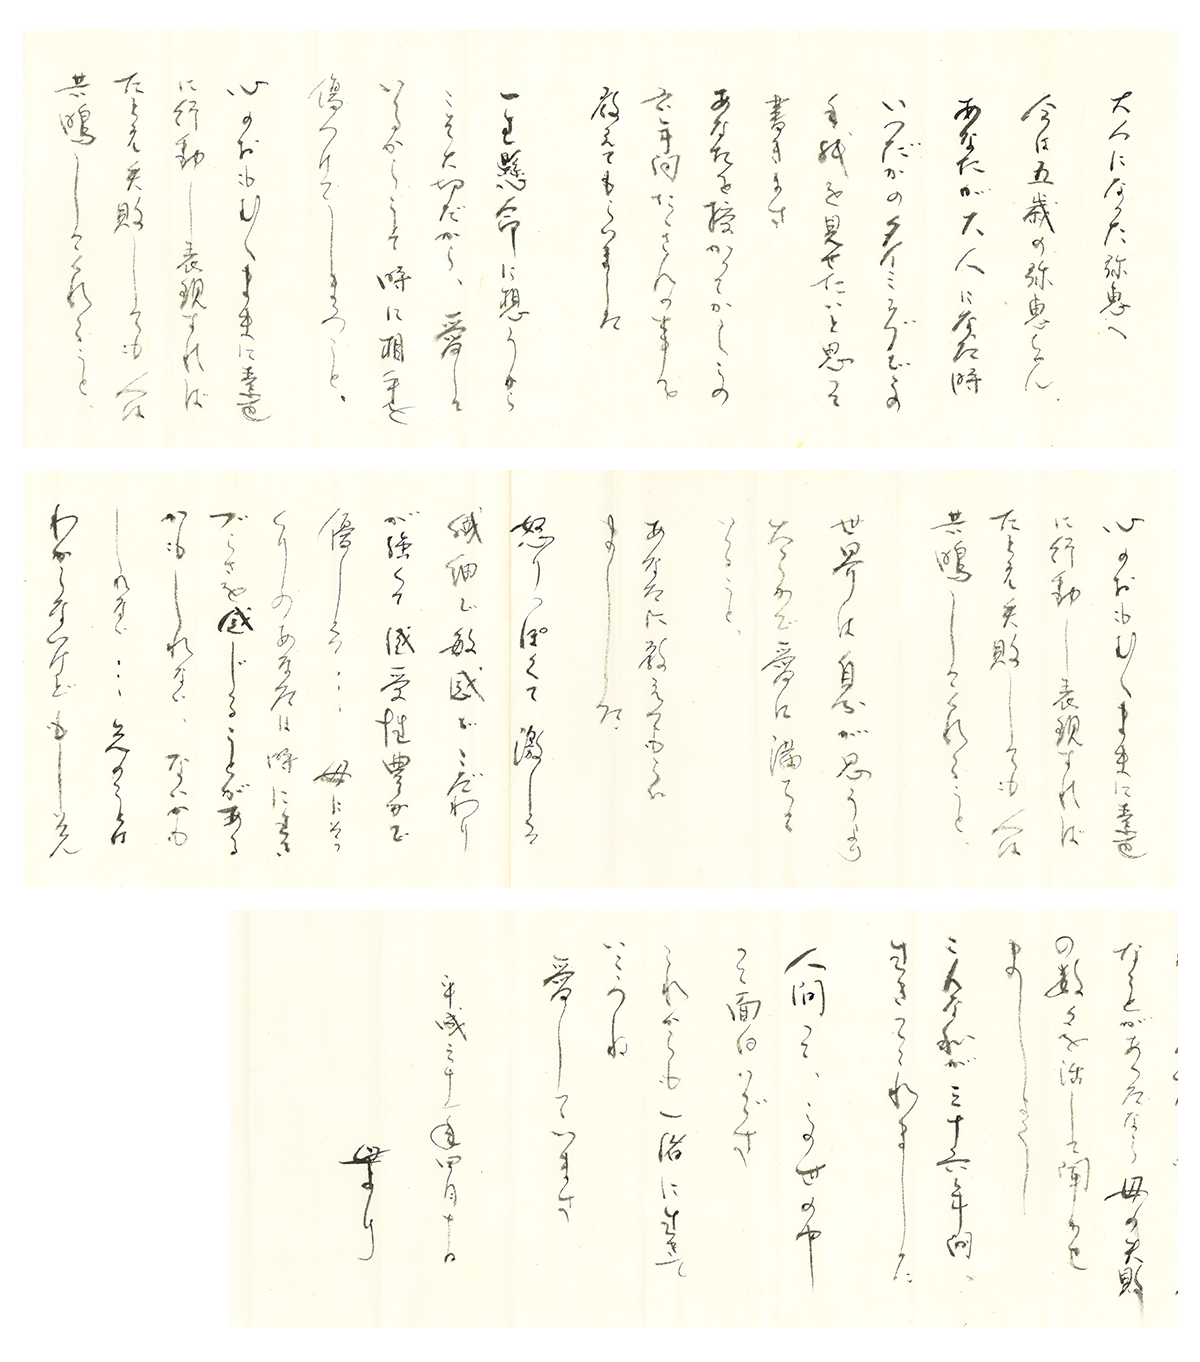 大人になった弥恵へ
今は五歳の弥恵ちゃん。
あなたが大人になった時
いつだかのタイミングでこの
手紙を見せたいと思って
書きます
あなたを授かってからこの
六年間たくさんの事を
教えてもらいました
一生懸命に想うから
こそ大切だから、愛して
いるからこそ時に相手を
傷つけてしまうこと、
心のおもむくままに素直
に行動し表現すれば
たとえ失敗しても人は
共鳴してくれること、
心のおもむくままに素直
に行動し表現すれば
たとえ失敗しても人は
共鳴してくれること、
世界は自分が思うより
大らかで愛に満ちて
いること、
あなたに教えてもらい
ました
怒りっぽくて激しい
繊細で敏感でこだわり
が強くて感受性豊かで
優しい… 母にそっ
くりのあなたは時に生き
づらさを感じることがある
かもしれない、ないかも
しれない… 先のことは
わからないけどもしそん
なことがあったなら母の失敗
の数々を話して聞かせ
ましょう
こんな私が三十六年間、
生きてこれました
人間って、この世の中
って面白いです
これからも一緒に生きて
いこうね
愛しています
平成三十一年四月十日
母より